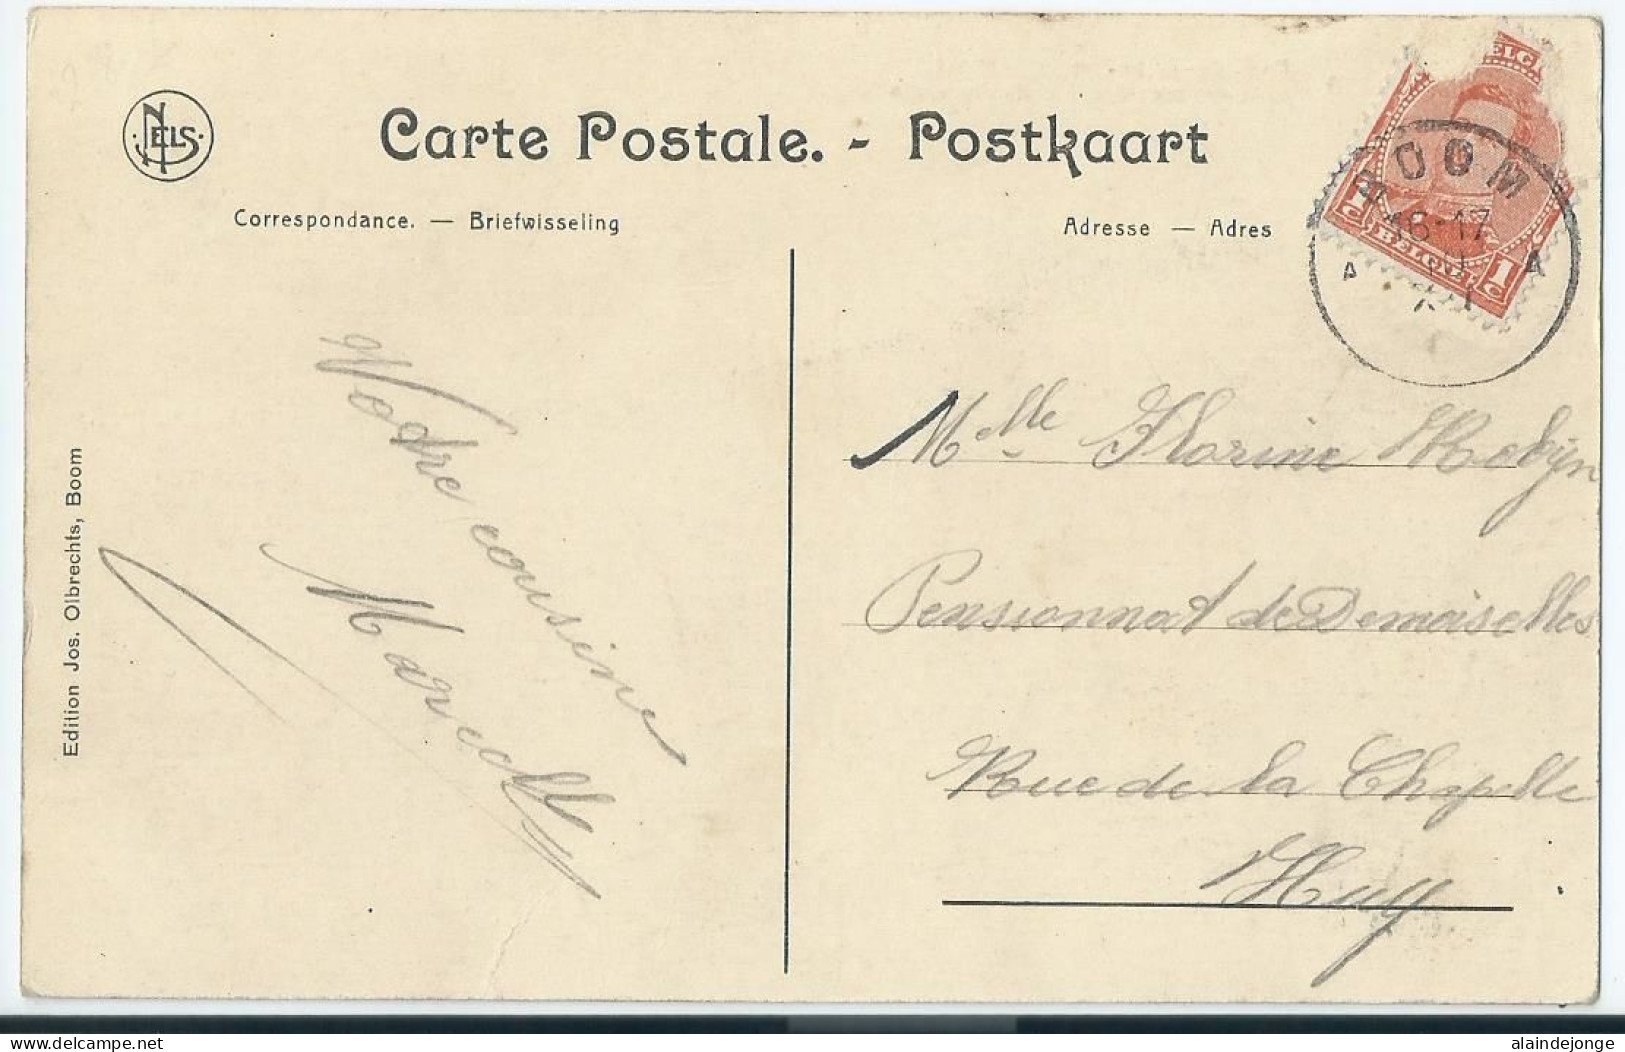 NELS
Carte Postale. - Postkaart
Correspondance. — Briefwisseling
Adresse — Adres
BELGIË
BOOM
16-17
A A
1c BELGIQUE 1c
Votre cousine
Marcelle
Mlle Florine
Pensionnat de Demaiselles
Rue de la Chapelle
Huy
Edition Jos. Olbrechts, Boom
www.delcampe.net
alaindejonge